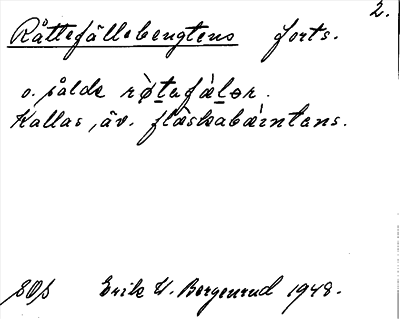 2.
Råttefällebengtens forts.
o. sålde rø̀tafàlər.
Kallas, äv. flàskabæ̀intans.
SOs Erik W. Bergenrud 1948.